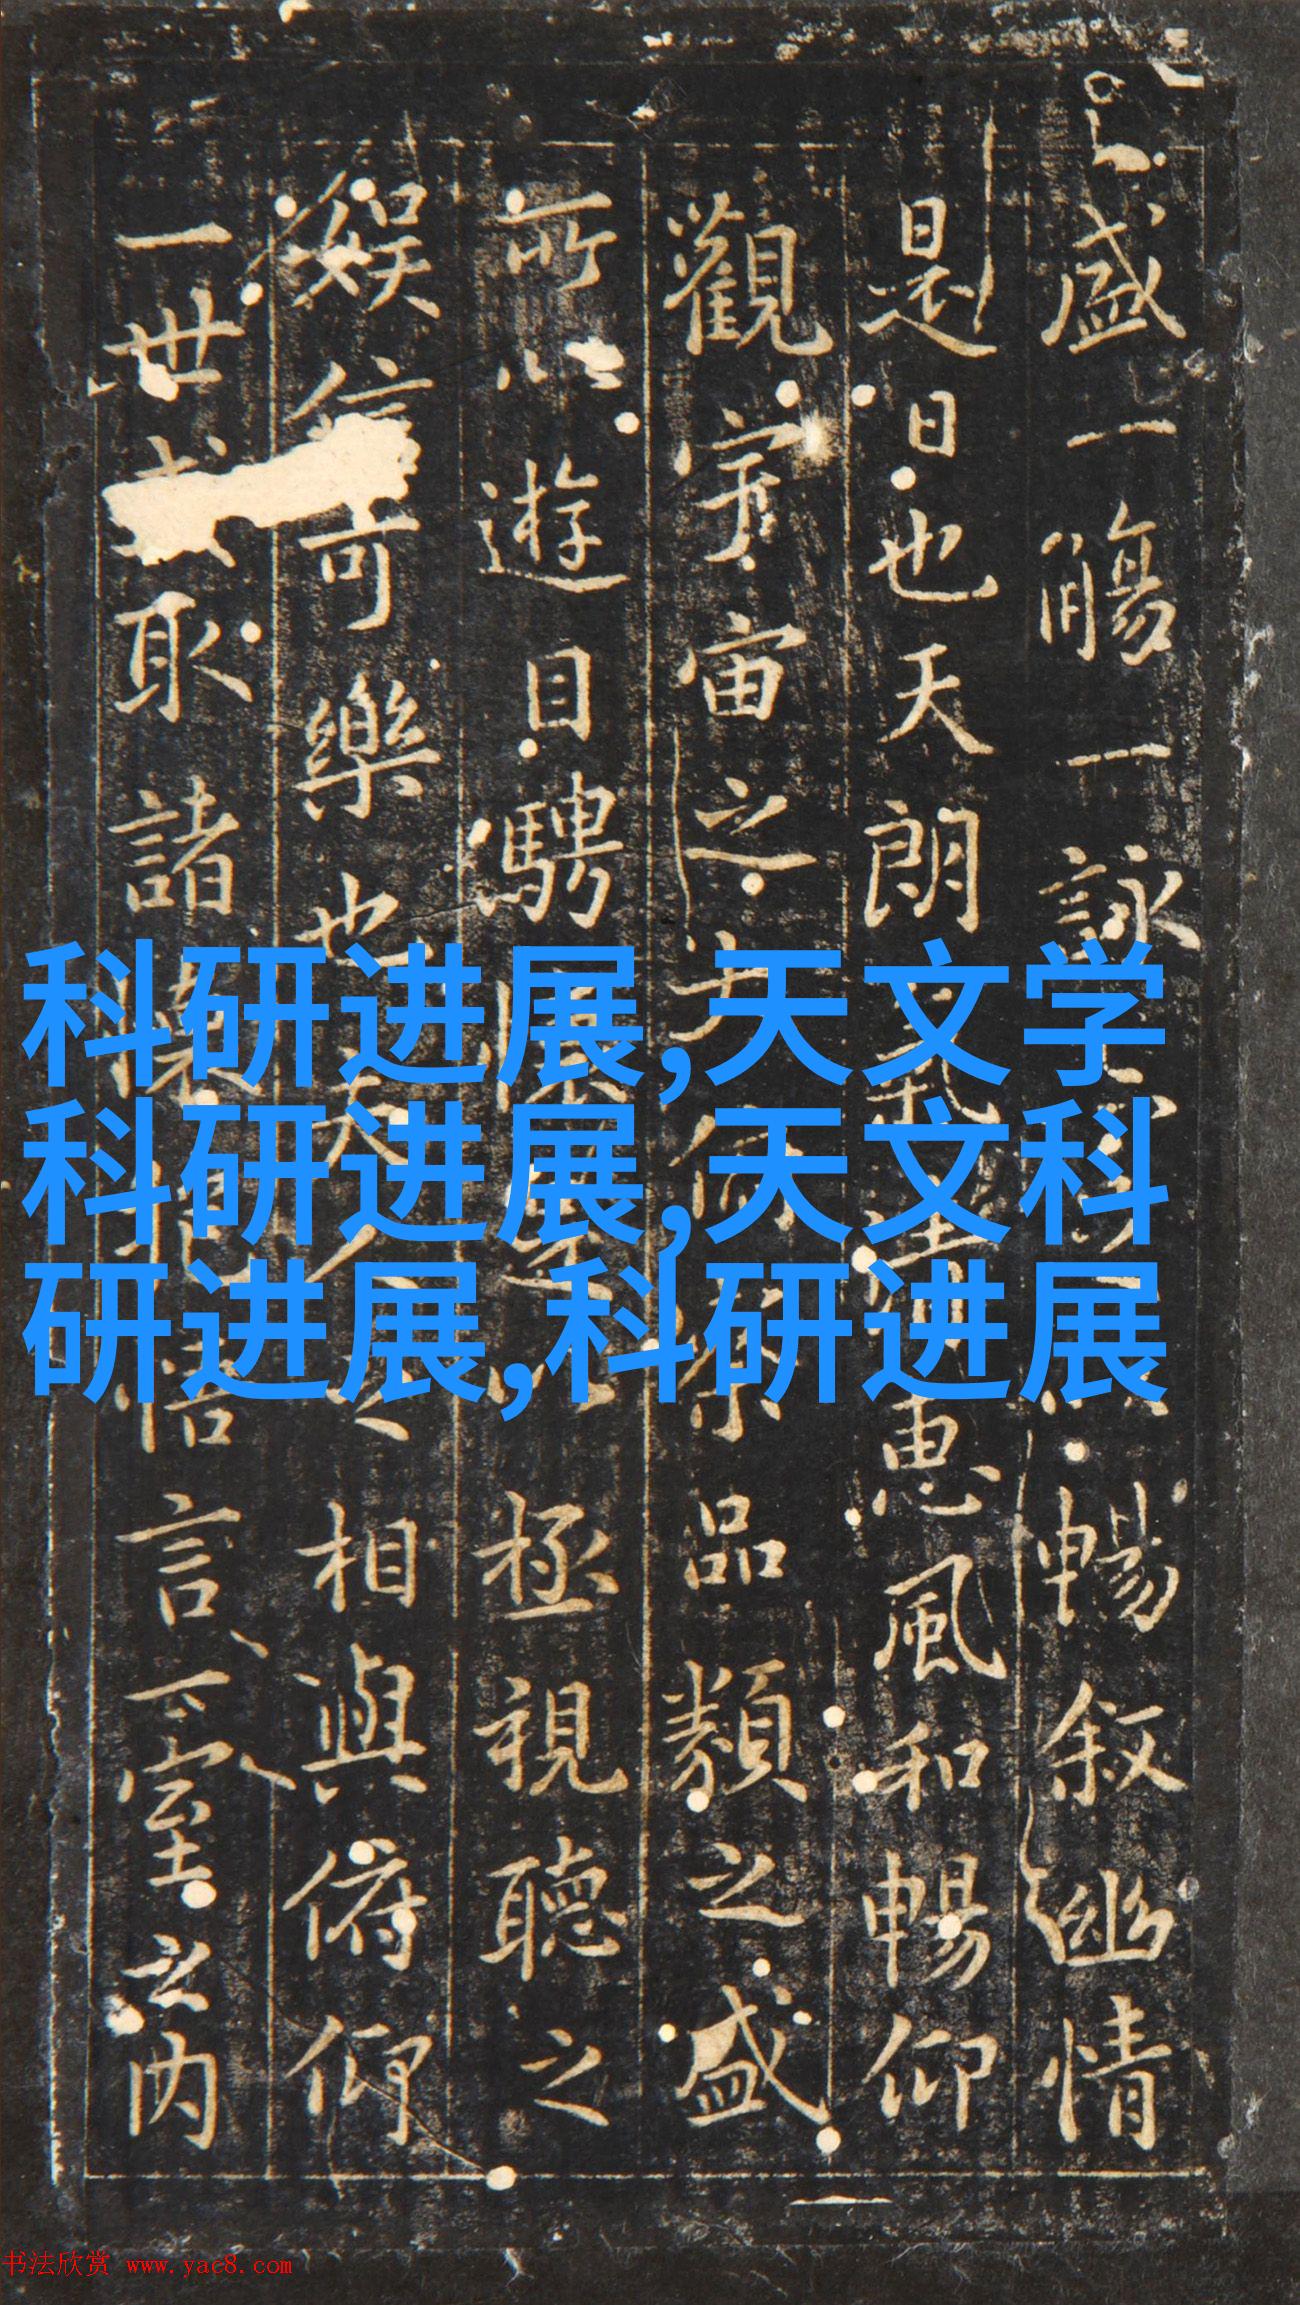 盛一觴一詠暢叙幽情
是日也天朗惠風和暢仰
觀宇宙之品類之盛
所以遊目騁極視聽之
娱信可樂也夫相與俯仰
一世或取諸言一室之内
科研进展,天文学
科研进展,天文科
研进展,科研进展
书法欣赏 www.yac8.com